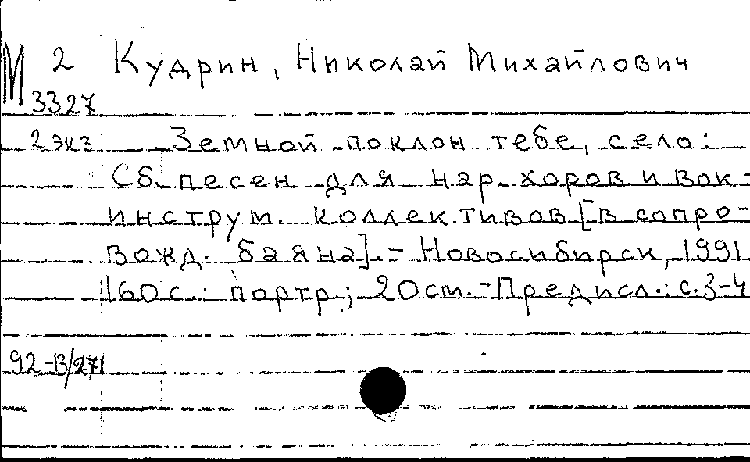 М 2 Кудрин, Николай Михайлович
3327
2 экз Земной поклон тебе, село:
Сб. песен для нар. хоров и вок-
инструм. коллективов [в сопро-
вожд. баяна]. - Новосибирск, 1991
160 с.: портр.; 20 см. - Предисл.: с. 3-4
92-В/271